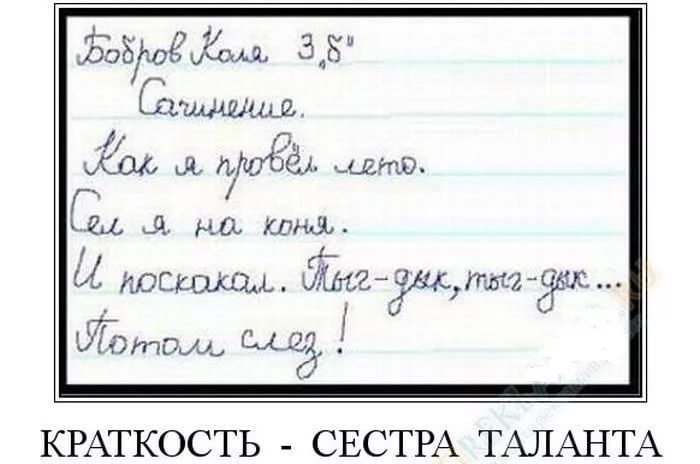 Бобров Коля 3 „б"
Сачинение.
Как я провёл лето.
Сел я на коня.
И поскакал. Тыг-дык, тыг-дык...
Потом слез!
КРАТКОСТЬ - СЕСТРА ТАЛАНТА